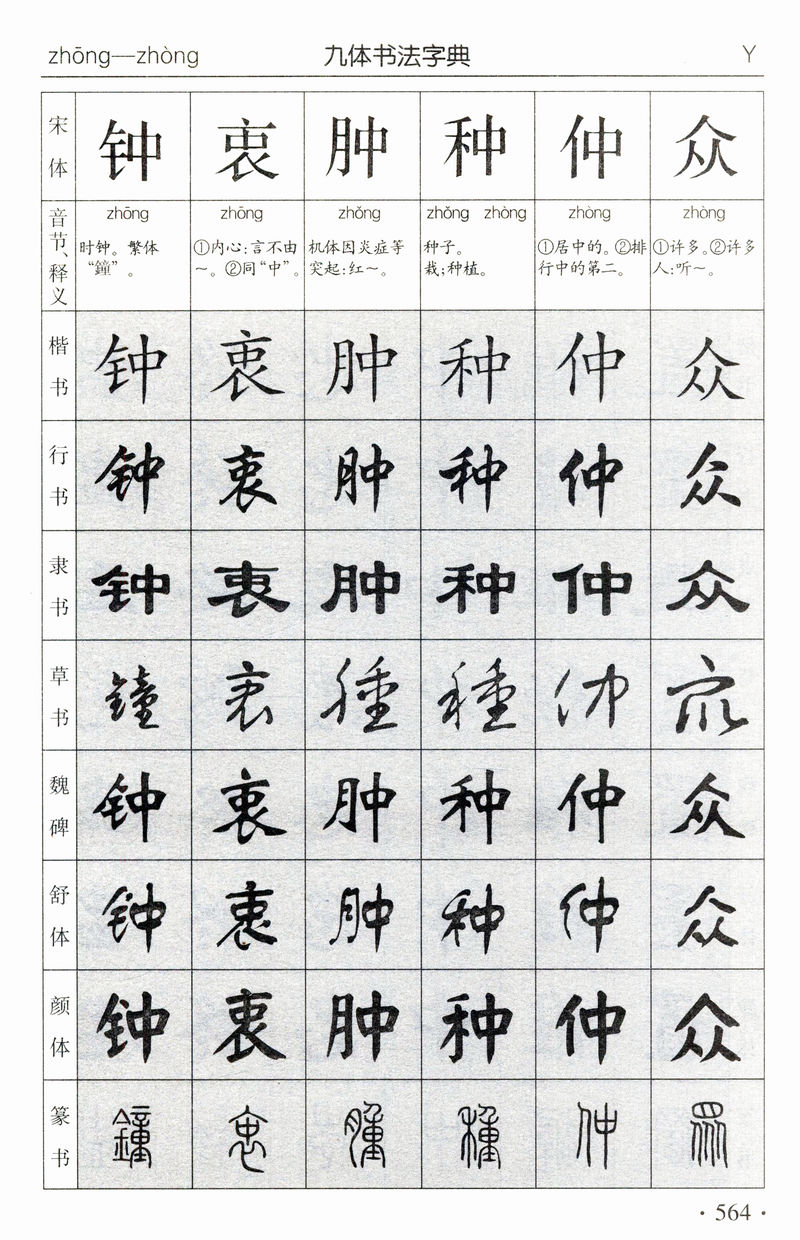 zhōng—zhòng 九体书法字典 Y
宋体 钟 衷 肿 种 仲 众
音节、释义
zhōng
时钟。繁体
“鐘”。
zhōng
①内心:言不由
～。②同“中”。
zhǒng
机体因炎症等
突起:红～。
zhǒng zhòng
种子。
栽;种植。
zhòng
①居中的。②排
行中的第二。
zhòng
①许多。②许多
人:听～。
楷书 钟 衷 肿 种 仲 众
行书 钟 衷 肿 种 仲 众
隶书 钟 衷 肿 种 仲 众
草书 鐘 衷 腫 種 仲 众
魏碑 钟 衷 肿 种 仲 众
舒体 钟 衷 肿 种 仲 众
颜体 钟 衷 肿 种 仲 众
篆书 鐘 衷 腫 種 仲 眾
·564·